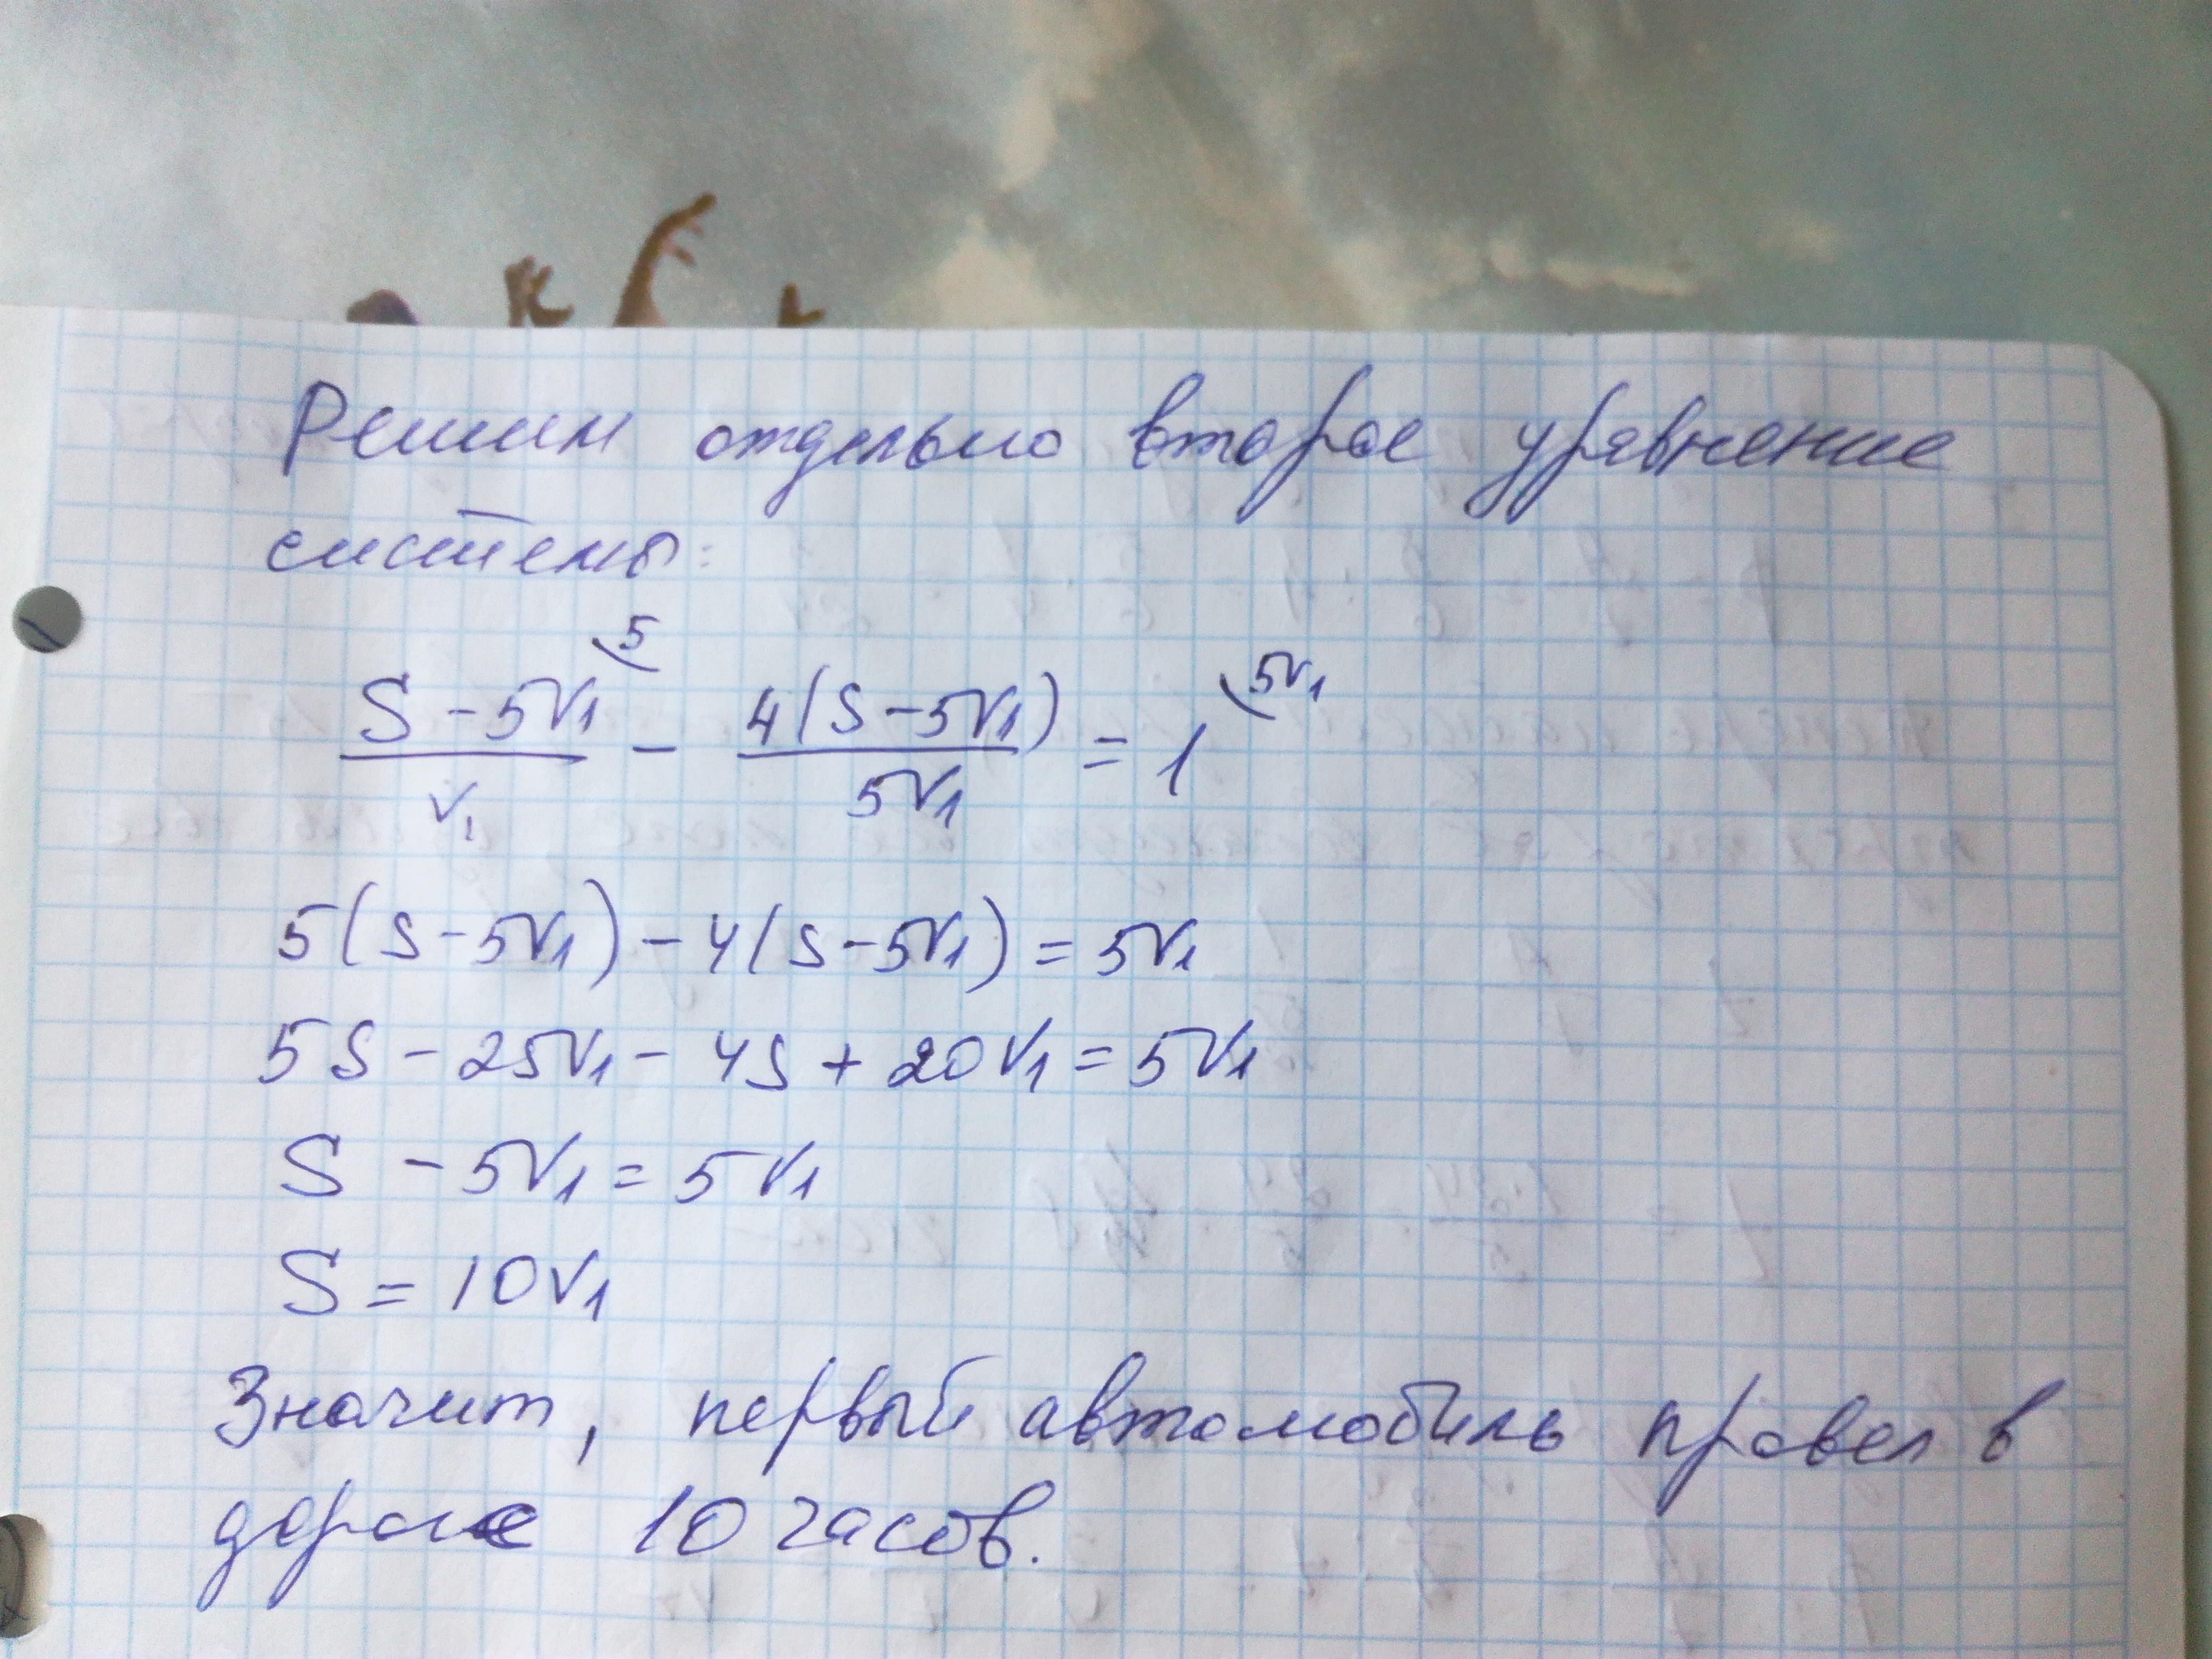 Решим отдельно второе уравнение
системы:
(S - 5V₁)/V₁ ⁽⁵ - 4(S - 5V₁)/5V₁ = 1 ⁽⁵ⱽ¹
5(S - 5V₁) - 4(S - 5V₁) = 5V₁
5S - 25V₁ - 4S + 20V₁ = 5V₁
S - 5V₁ = 5V₁
S = 10V₁
Значит, первый автомобиль провел в
дороге 10 часов.